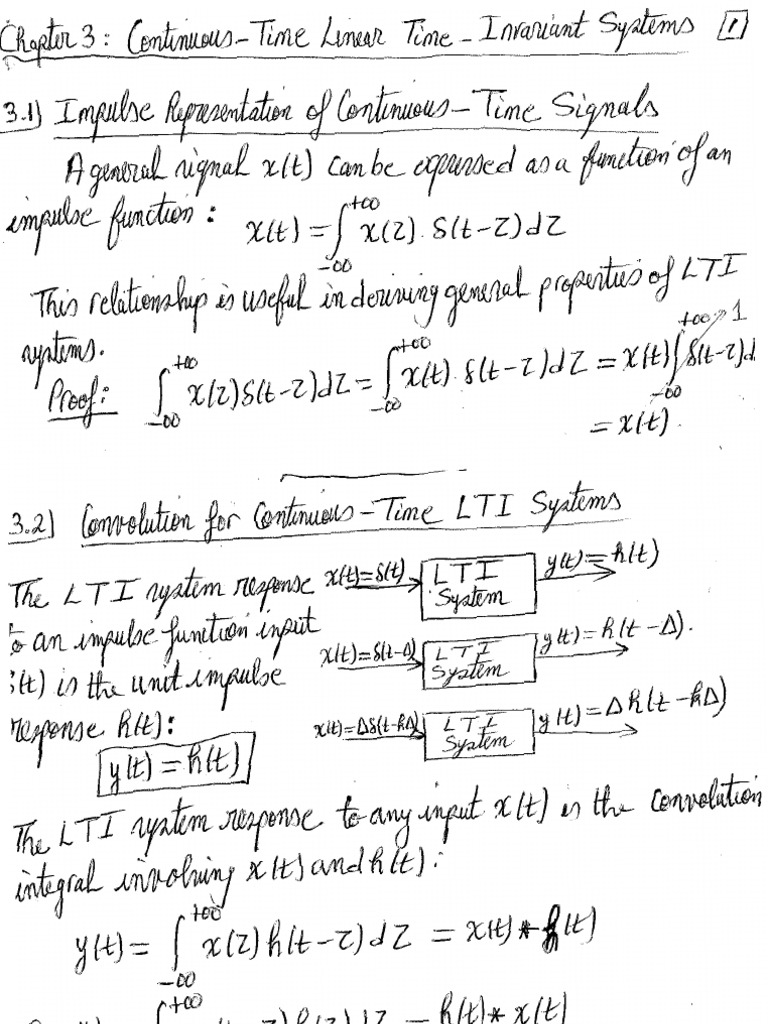 Chapter 3: Continuous-Time Linear Time-Invariant Systems 1
3.1) Impulse Representation of Continuous-Time Signals
A general signal x(t) can be expressed as a function of an
impulse function: x(t) = ∫_{-∞}^{+∞} x(τ).δ(t-τ)dτ
This relationship is useful in deriving general properties of LTI
systems.
Proof: ∫_{-∞}^{+∞} x(τ)δ(t-τ)dτ = ∫_{-∞}^{+∞} x(t).δ(t-τ)dτ = x(t)∫_{-∞}^{+∞} δ(t-τ)d → 1
= x(t).
3.2) Convolution for Continuous-Time LTI Systems
The LTI system response
to an impulse function input
δ(t) is the unit impulse
response h(t):
y(t) = h(t)
x(t)=δ(t) LTI System y(t)=h(t)
x(t)=δ(t-Δ) LTI System y(t)=h(t-Δ).
x(t)=Δδ(t-kΔ) LTI System y(t)=Δh(t-kΔ)
The LTI system response to any input x(t) is the convolution
integral involving x(t) and h(t):
y(t) = ∫_{-∞}^{+∞} x(τ)h(t-τ)dτ = x(t)*h(t)
∫^{+∞} -τ)h(τ)dτ = h(t)*x(t)